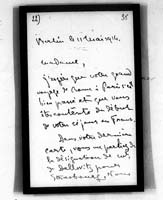 22) 35
Berlin le 11 mai 1914.
Madame,
J'espère que votre grand
voyage de Rome à Paris s'est
bien passé et que vous
êtes contente du début
de votre séjour en France.
Dans votre dernière
carte, vous me parlez de
la désignation de M.
de pour
Strasbourg. Nous